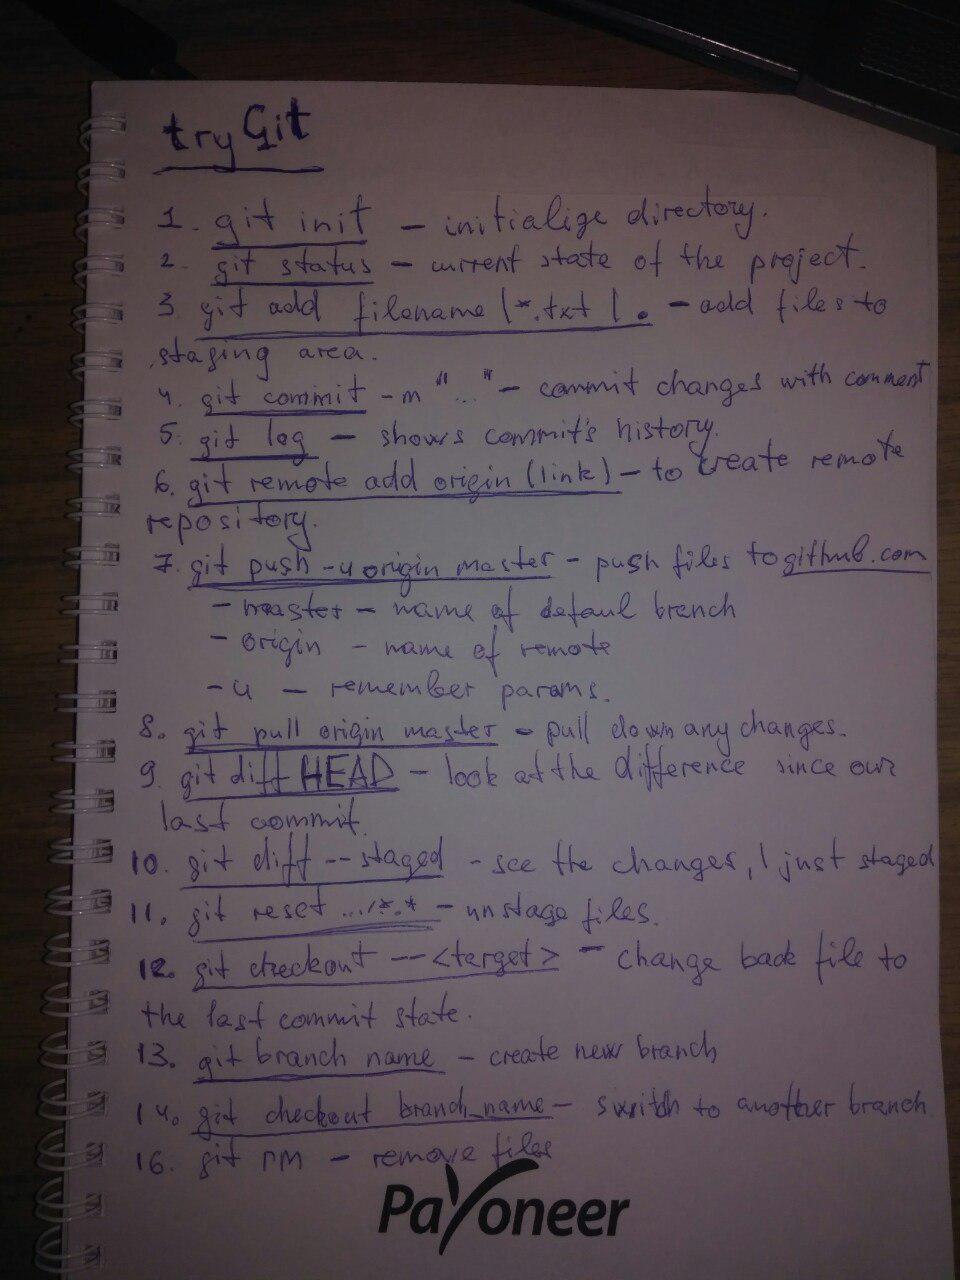 try Git
1. git init – initialize directory.
2. git status – current state of the project.
3. git add filename | *.txt | . – add files to
staging area.
4. git commit -m "..." – commit changes with comment
5. git log – shows commit's history.
6. git remote add origin (link) – to create remote
repository.
7. git push -u origin master – push files to github.com
– master – name of defaul branch
– origin – name of remote
-u – remember params.
8. git pull origin master – pull down any changes.
9. git diff HEAD – look at the difference since our
last commit.
10. git diff --staged – see the changes, I just staged
11. git reset .../*.* – unstage files.
12. git checkout -- <target> – change back file to
the last commit state.
13. git branch name – create new branch
14. git checkout branch_name – switch to another branch.
16. git rm – remove files
Payoneer